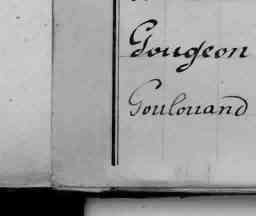 Gougeon
Goulouand